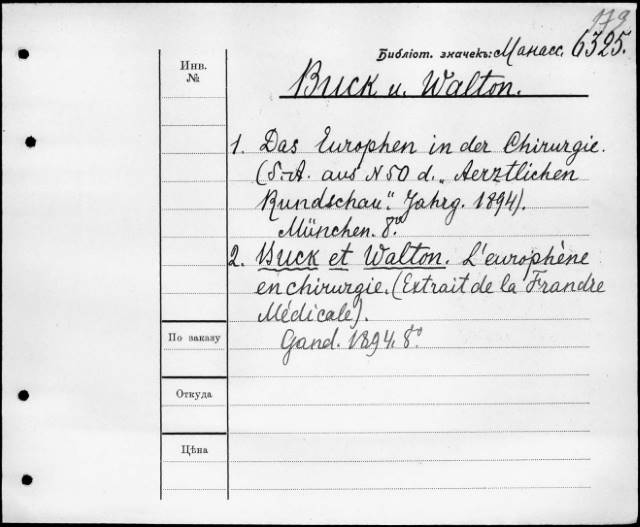 179
Библіот. значекъ: Манасс. 6325.
Инв.
№
Buck u. Walton.
1. Das Europhen in der Chirurgie.
(S.-A. aus N 50 d. „Aerztlichen
Rundschau“. Jahrg. 1894).
München. 8°
2. Buck et Walton. L'europhène
en chirurgie. (Extrait de la Frandre
Médicale).
По заказу
Gand. 1894. 8°.
Откуда
Цѣна